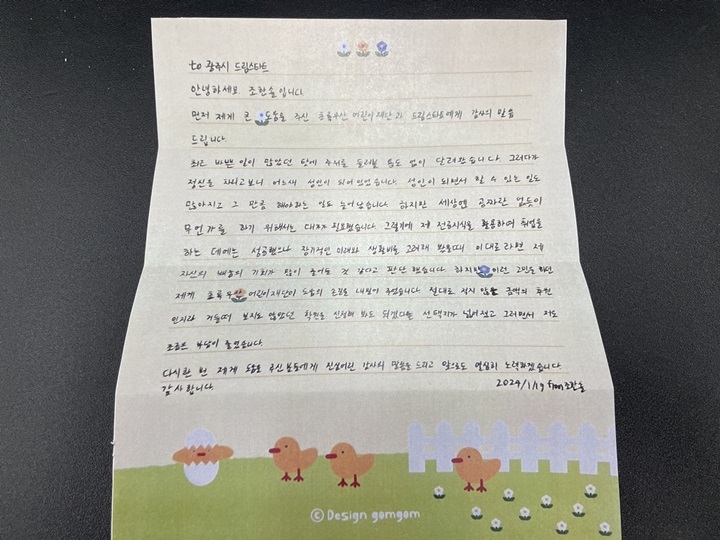 to 광주시 드림스타트
안녕하세요. 조한솔입니다.
먼저 제게 큰 도움을 주신 초록우산 어린이재단과 드림스타트에게 감사의 말씀
드립니다.
최근 바쁜 일이 많았던 탓에 주위를 둘러볼 틈도 없이 달려왔습니다. 그러다가
정신을 차리고보니 어느새 성인이 되어있었습니다. 성인이 되면서 할 수 있는 일도
많아지고 그 만큼 해야하는 일도 늘어났습니다. 하지만 세상엔 공짜란 없듯이
무언가를 하기 위해서는 대가가 필요했습니다. 그렇기에 제 전공지식을 활용하여 취업을
하는 데에는 성공했으나 장기적인 미래와 생활비를 고려해 봤을때 이대로라면 제
자신의 배움의 기회가 많이 줄어들 것 같다고 판단했습니다. 하지만 이런 고민을 하던
제게 초록우산 어린이재단이 도움의 손길을 내밀어 주셨습니다. 절대로 적지 않은 금액의 후원
인지라 거들떠 보지도 않았던 학원을 신청해 봐도 되겠다는 선택지가 넓어졌고 그러면서 저도
조금은 부담이 줄었습니다.
다시한 번 제게 도움을 주신 분들에게 진심어린 감사의 말씀을 드리고 앞으로도 열심히 노력하겠습니다.
감사합니다. 2024/1/19 from 조한솔
ⓒ Design gomgom